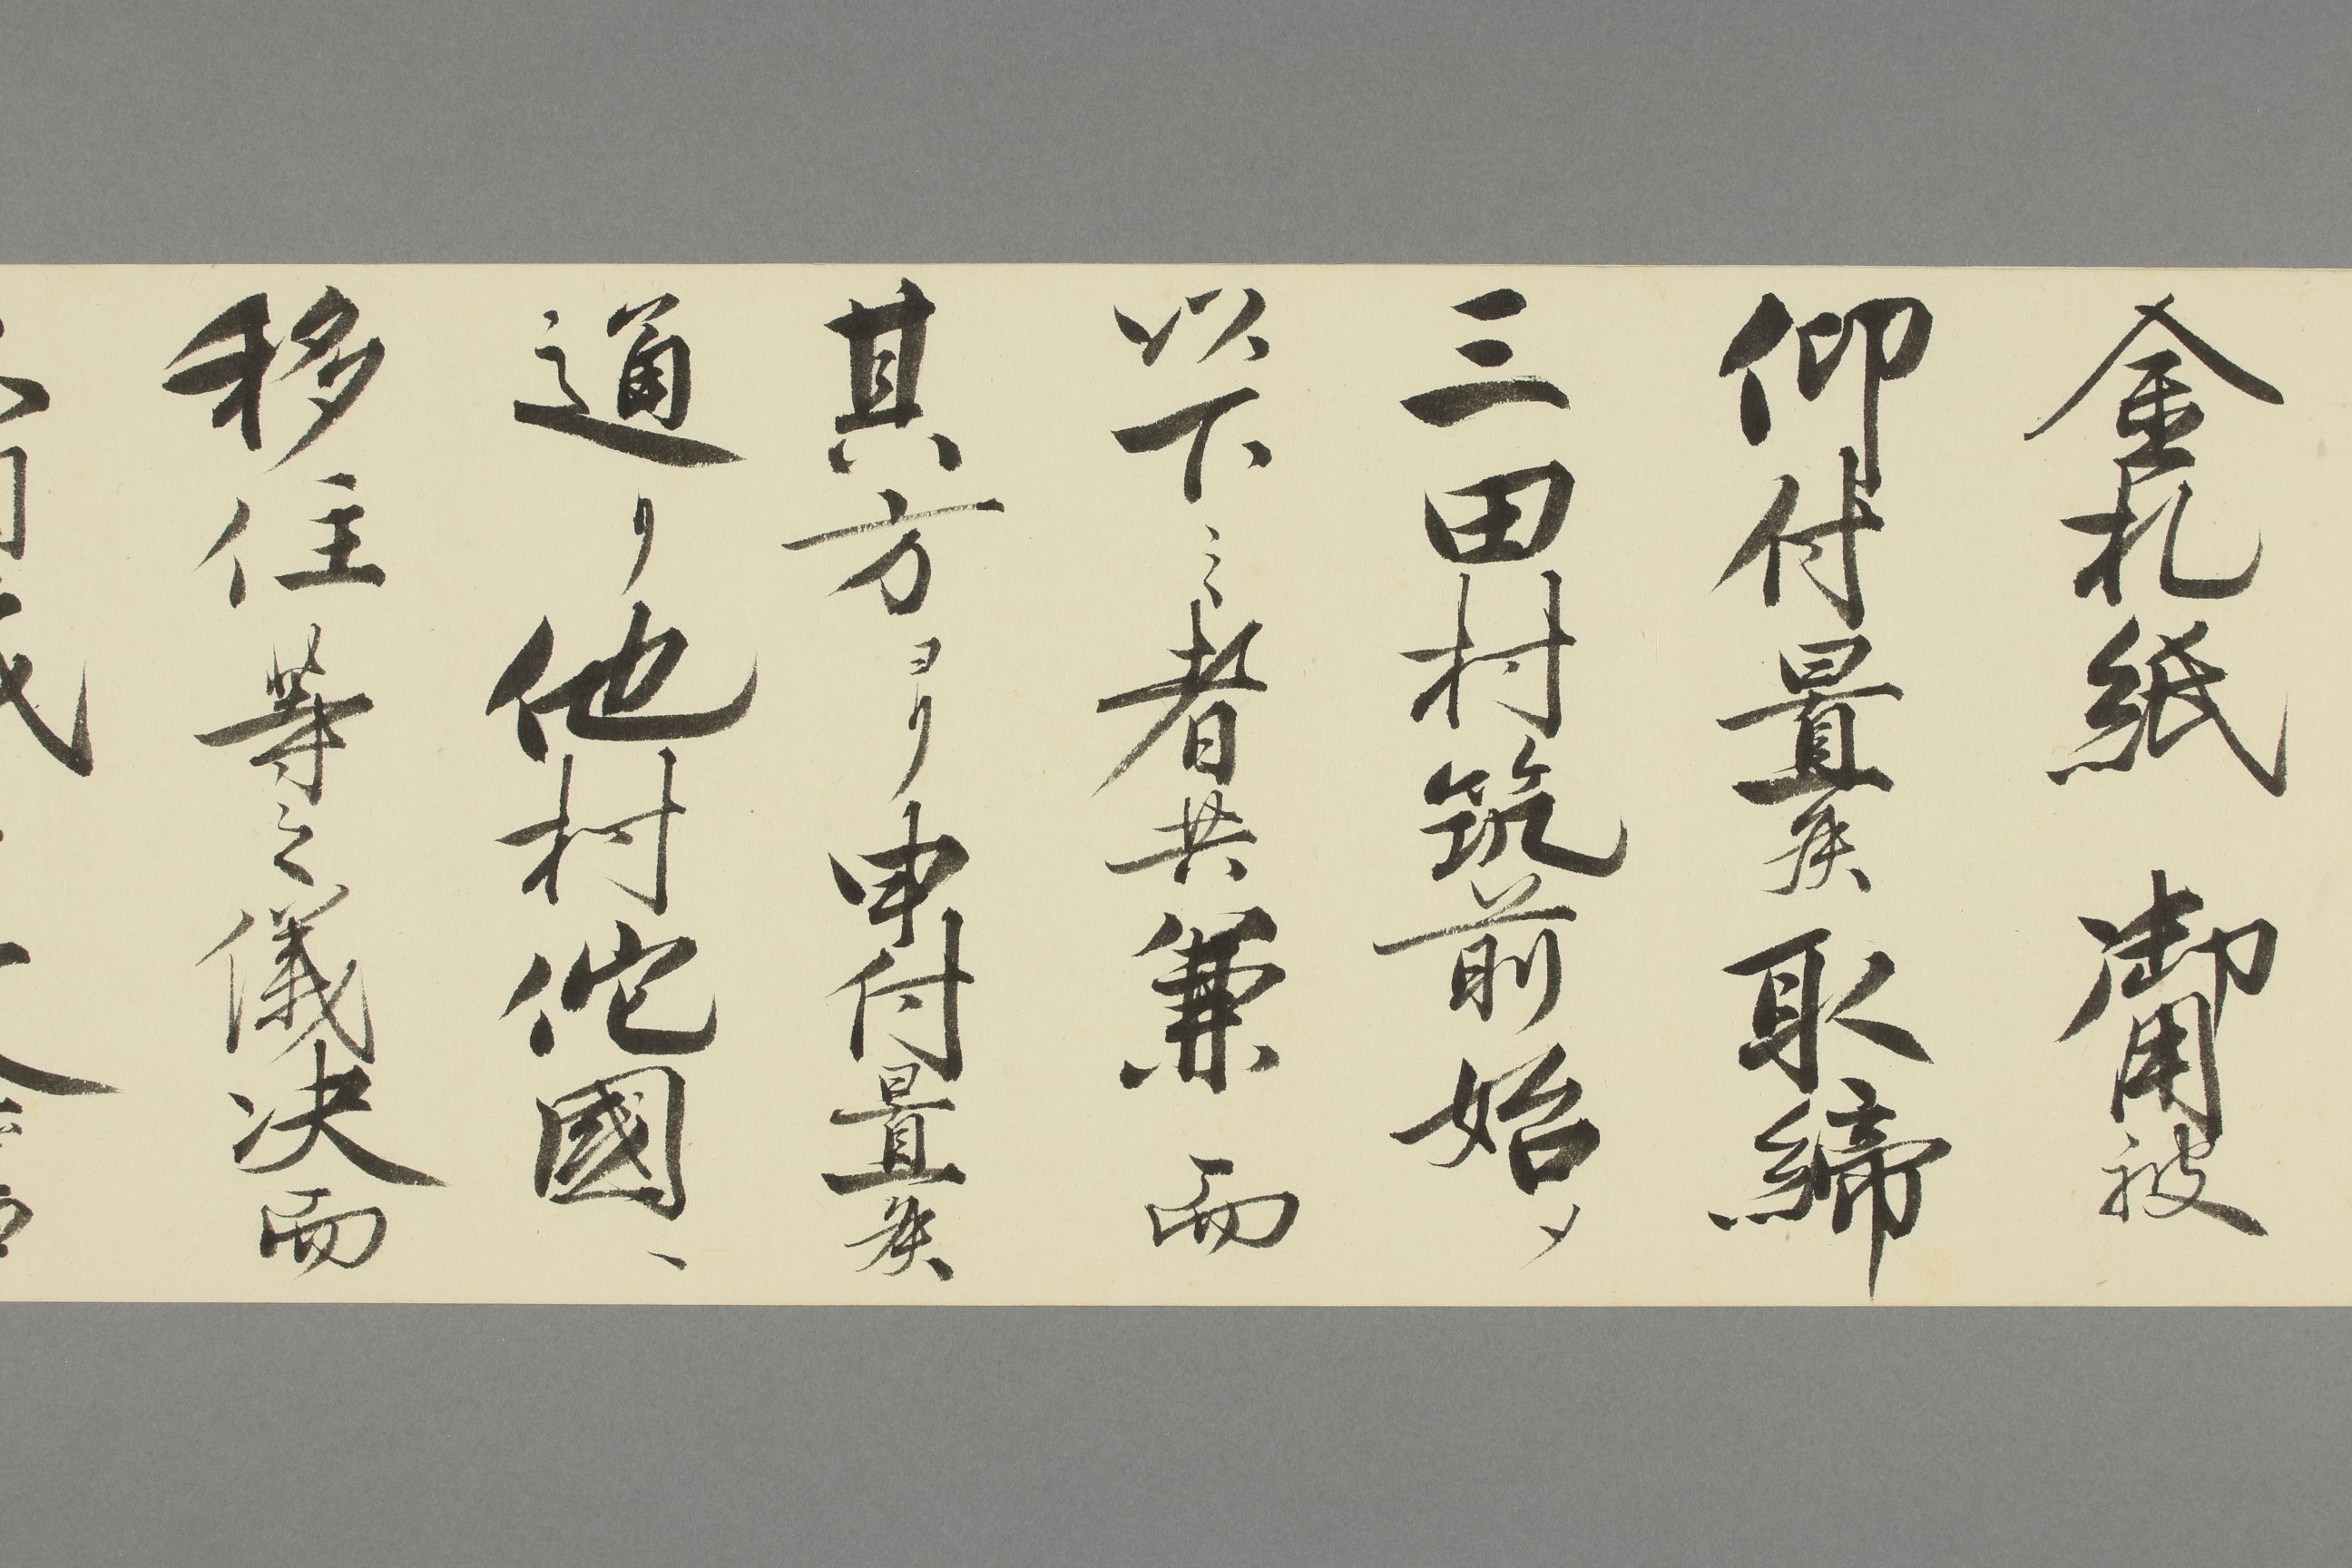 金札紙 御用被
仰付置候取締
三田村筑前始メ
以下之者共兼而
其方ヨリ申付置候
通り他村佗國ヘ
移住等之儀决而